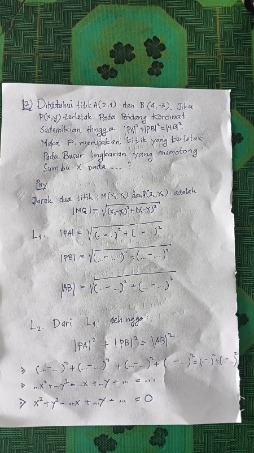 12) Diketahui titik A(2,1) dan B(4,-3). Jika
P(x,y) terletak pada bidang koordinat
Sedemikian hingga |PA|²+|PB|²=|AB|²
Maka P merupakan titik yang terletak
Pada Busur lingkaran yang memotong
Sumbu X pada ....
Jarak dua titik M(x₁,y₁) dan adalah
L₁. |PA| = √(..-..)²+(..-..)²
|PB| = √(..-..)²+(..-..)²
|AB| = √(..-..)²+(..-..)²
L₂. Dari L₁ sehingga:
|PA|² + |PB|² = |AB|²
⇒ (..-..)²+(..-..)²+(..-..)²+(..-..)²=(..-..)²+(..-..)²
⇒ x²+y²-..x+..y+... = 0